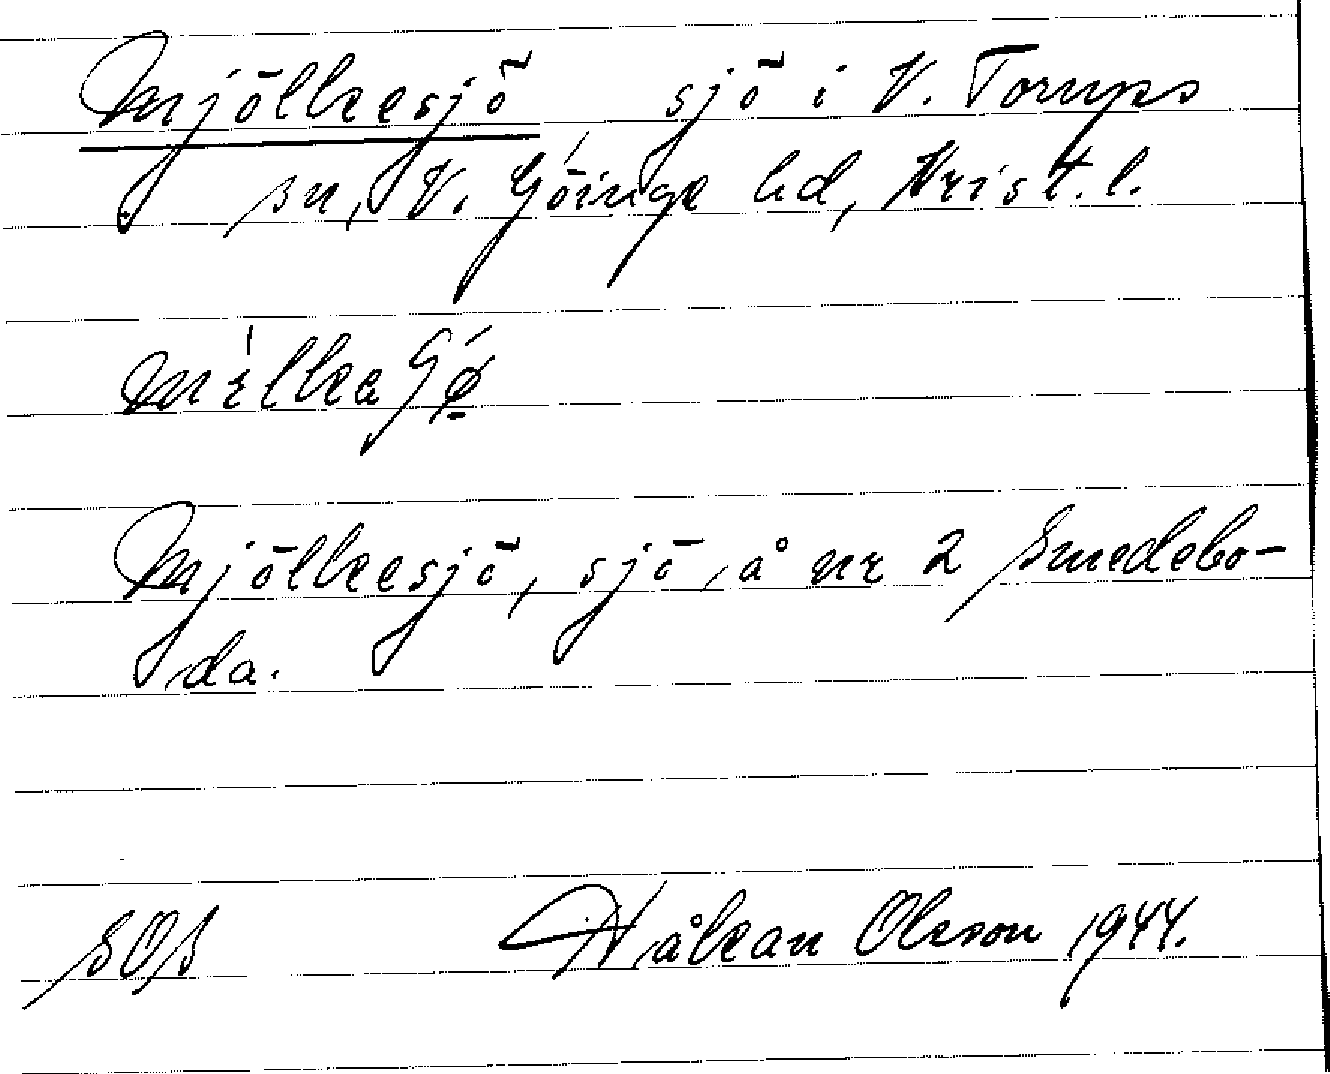 Mjölkesjö sjö i V. Torups
sn, V. Göinge hd, Krist. l.
Mjölkesjö, sjö, å nr 2 Smedebo-
da.
SOS Håkan Olsson 1944.